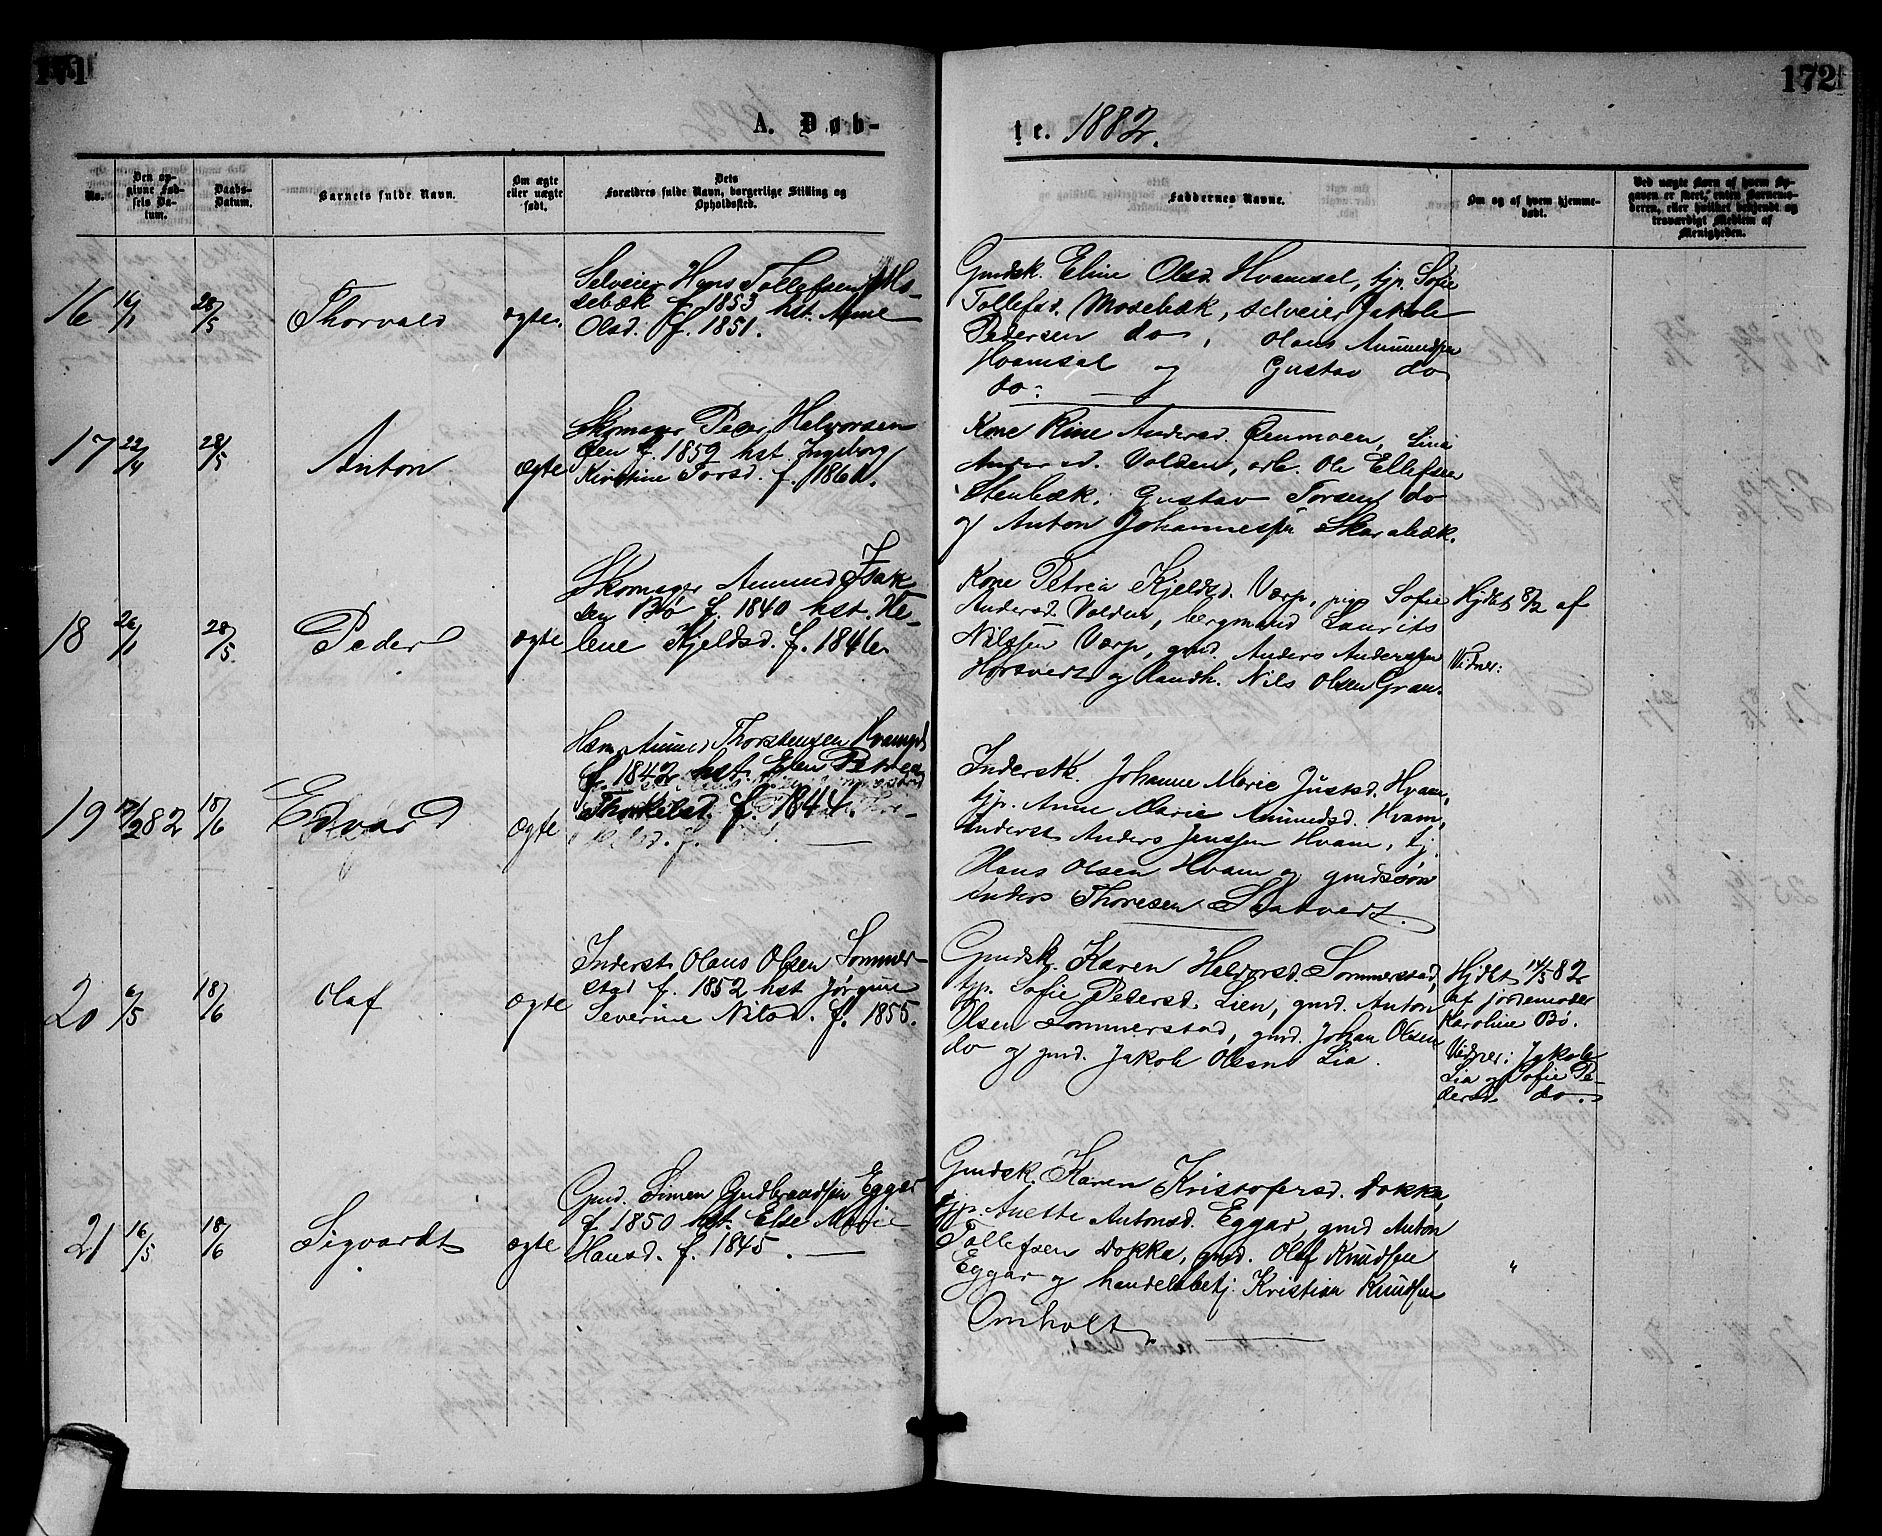 171
172
A. Døb-
te. 1882.
No.
Den op-
givne Fød-
sels Da-
tum.
Daabs-
Datum.
Barnets fulde Navn.
Om ægte
eller uægte
født.
Dets
Forældres fulde Navn, borgerlige Stilling og
Opholdssted.
Faddernes Navne.
Om og af hvem hjemme-
døbt.
Ved uægte Børn af hvem Op-
gaven er skeet, enten Barnemo-
deren, eller hvilket bekjendt og
troværdigt Medlem af
Menigheden.
16 14/1 28/5 Thorvald ægte.
Selveier Hans Tollefsen Mo-
sebæk f. 1853 hst. Anne
Olsd. f. 1851.
Gmdsk. Eline Olsd. Hvamsal, tjp. Sofie
Tollefsd. Mosebæk, selveier Jakob
Pedersen do, Hans Amundsen
Hvamsal og Gustav do
do.
17 22/4 28/5 Anton ægte
Skomager Peder Halvorsen
Øen f. 1859 hst. Ingeborg
Kirstine Torsd. f. 1861.
Kone Rine Andersd. Øenmoen, Lina
Andersd. Volden, arb. Ole Ellefsen
Stenbæk, Gustav Torsen do
og Anton Johannesen Skarabæk.
18 26/1 28/5 Peder ægte
Skomager Amund Isak-
sen Bø f. 1840 hst. He-
lene Kjeldsd. f. 1846
Kone Petrea Kjeldsd. Værp, pige Sofie
Andersd. Volden, bergmand Laurits
Nilssen Værp, gmd. Anders Andersen
Horsvedt og Landh. Nils Olsen Gran.
Hjdbt 8/2 af
Vidner:
19 12/2 82 18/6 Edvard ægte
Hsm. Amund Thorstensen Hvamsal
f. 1842 hst. Elen Petrea
Thorkelsd. f. 1844.
Inderstk. Johanne Marie Justsd. Hvam,
tjp. Anne Marie Amundsd. Hvam,
Inderst Anders Jenssen Hvam, tj.
Hans Olsen Hvam og gmdssøn
Anders Thoresen Saatvedt.
20 6/5 18/6 Olaf ægte
Inderst Olaus Olsen Sommer-
stad f. 1852 hst Jørgine
Severine Nilsd. f. 1855.
Gmdsk. Karen Halvorsd. Sommerstad,
tjp. Sofie Pedersd. Lien, gmd. Anton
Olsen Sommerstad, gmd. Johan Olsen
do og gmd. Jakob Olsen Lia.
Hjdbt 14/5 82
af jordemoder
Karoline Bø.
Vidner: Jakob
Lia og Sofie Pe-
dersd. do.
21 16/5 18/6 Sigvardt ægte
Gmd. Simen Gudbrandsen Eggar
f. 1850 hst. Else Marie
Hansd. f. 1845.
Gmdsk. Karen Kristofersd. Dokka,
tjp. Anette Antonsd. Eggar, gmd Anton
Tollefsen Dokka, gmd. Olaf Knudsen
Eggar og handelsbetj. Kristian Knudsen
Omholt
"